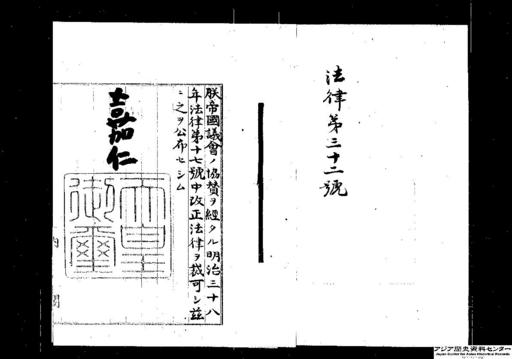 法律第三十二號
朕帝國議會ノ協賛ヲ經タル明治三十八
年法律第十七號中改正法律ヲ裁可シ茲
ニ之ヲ公布セシム
嘉仁
天皇
御璽
内閣
アジア歴史資料センター
Japan Center for Asian Historical Records